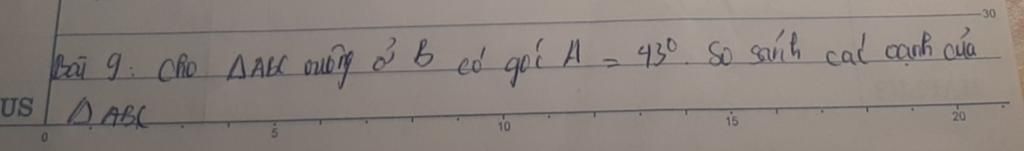 30
Bài 9: Cho ΔABC vuông ở B có góc A = 43°. So sánh các cạnh của
US ΔABC
0 5 10 15 20